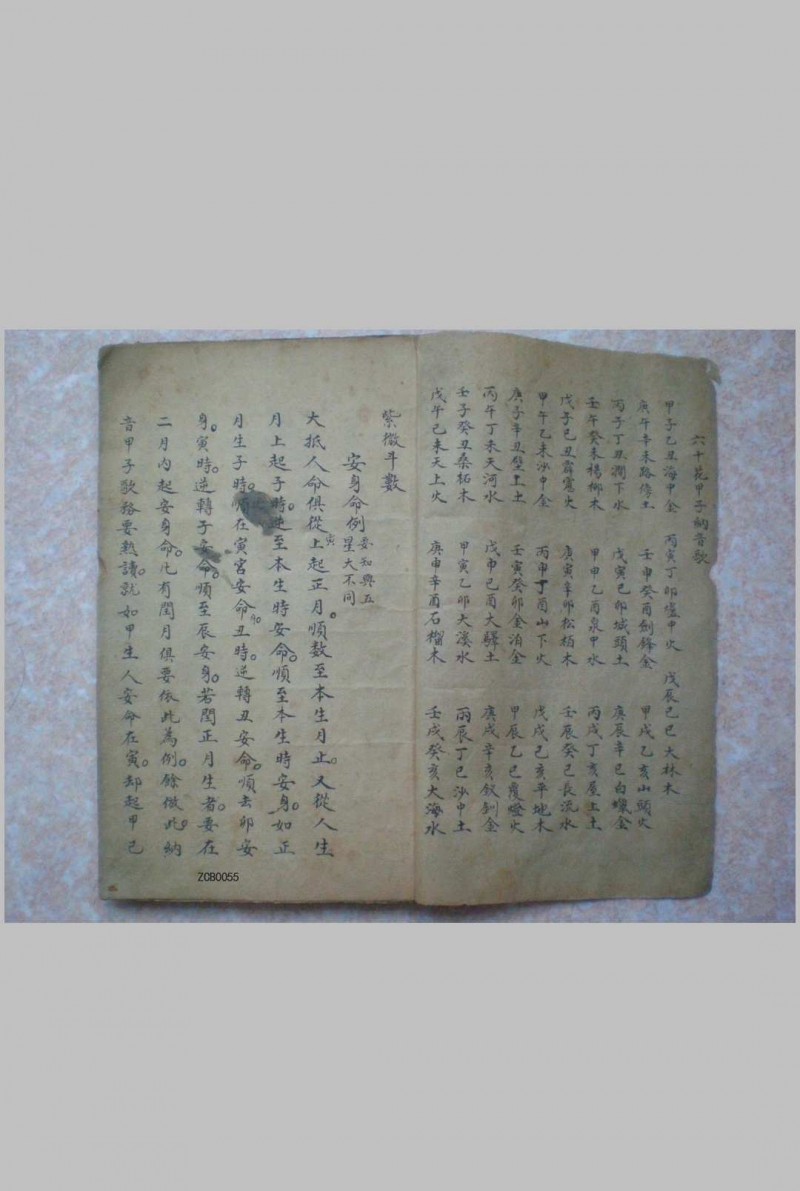 六十花甲子納音歌
甲子乙丑海中金 丙寅丁卯爐中火 戊辰己巳大林木
庚午辛未路傍土 壬申癸酉劍鋒金 甲戌乙亥山頭火
丙子丁丑澗下水 戊寅己卯城頭土 庚辰辛巳白蠟金
壬午癸未楊柳木 甲申乙酉泉中水 丙戌丁亥屋上土
戊子己丑霹靂火 庚寅辛卯松柏木 壬辰癸巳長流水
甲午乙未沙中金 丙申丁酉山下火 戊戌己亥平地木
庚子辛丑壁上土 壬寅癸卯金泊金 甲辰乙巳覆燈火
丙午丁未天河水 戊申己酉大驛土 庚戌辛亥釵釧金
壬子癸丑桑柘木 甲寅乙卯大溪水 丙辰丁巳沙中土
戊午己未天上火 庚申辛酉石榴木 壬戌癸亥大海水
紫微斗數
安身命例 要知與五
星大不同
大抵人命俱從寅上起正月。順数至本生月止。又從人生
月上起子時。逆至本生時安命。順至本生時安身。如正
月生子時。順在寅宮安命。丑時。逆轉丑安命。順去卯安
身。寅時。逆轉子安命。順至辰安身。若閏正月生者。要在
二月內起安身命。凡有閏月俱要依此為例。餘倣此。納
音甲子歌務要熟讀。就如甲生人安命在寅。卻起甲己
ZCB0055